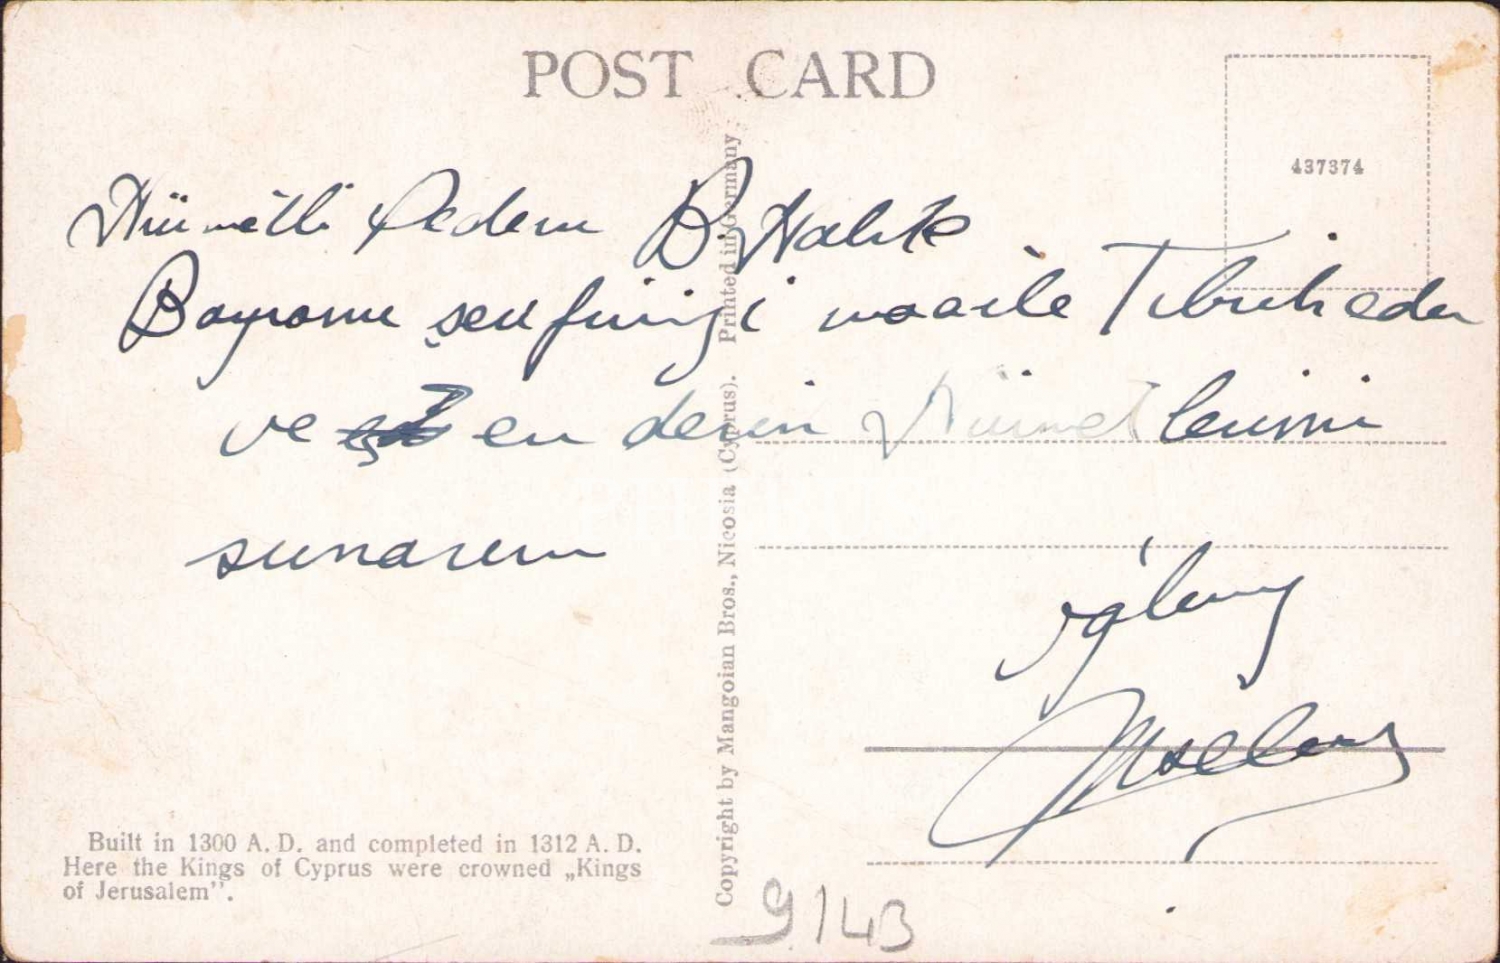 POST CARD
437374
Hürmetli Pederim B. Halik
Bayramınızı vesile Tebrik eder
ve en derin Hürmetlerimi
sunarım
oğlunuz
Copyright by Mangoian Bros., Nicosia (Cyprus). Printed in Germany
Built in 1300 A. D. and completed in 1312 A. D.
Here the Kings of Cyprus were crowned „Kings
of Jerusalem".
9143